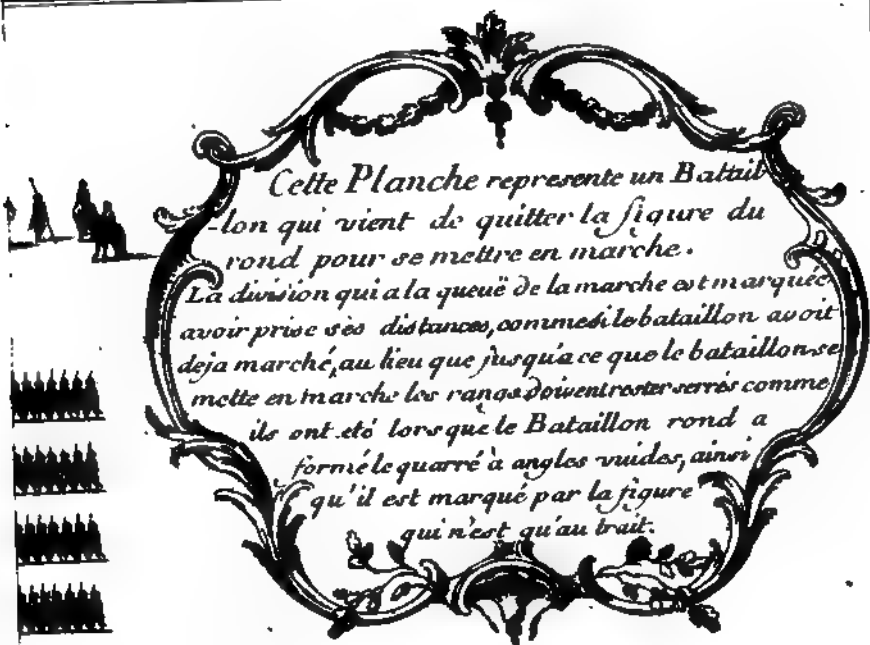 Cette Planche represente un Battail
-lon qui vient de quitter la figure du
rond pour se mettre en marche.
La division qui a la queuë de la marche est marquée
avoir prise sès distances, comme si le bataillon avoit
deja marché, au lieu que jusqu'a ce que le bataillon se
mette en marche les rangs doivent rester serrés comme
ils ont eté lorsque le Bataillon rond a
formé le quarré à angles vuides, ainsi
qu'il est marqué par la figure
qui n'est qu'au trait.